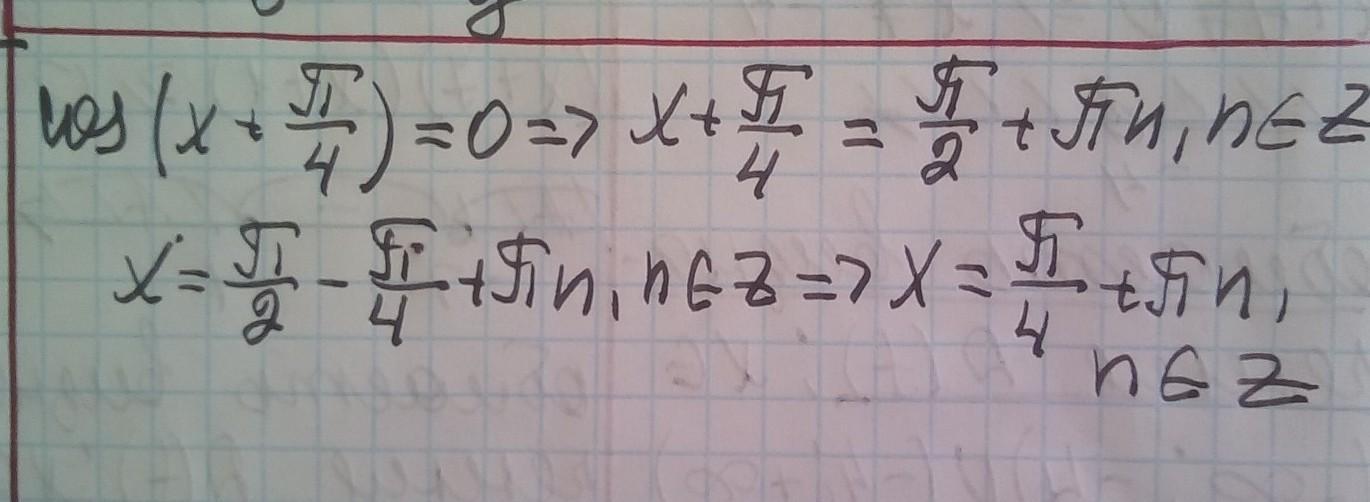 cos(x + π/4) = 0 => x + π/4 = π/2 + πn, n ∈ Z
x = π/2 - π/4 + πn, n ∈ Z => x = π/4 + πn,
n ∈ Z